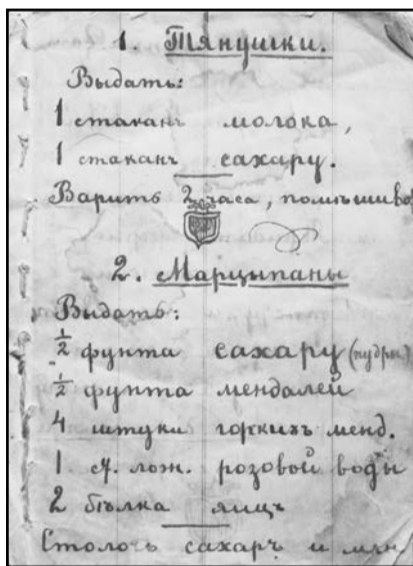 1. Тянушки.
Выдать:
1 стаканъ молока,
1 стаканъ сахару.
Варить 2 часа, помѣшиво
2. Марципаны
Выдать:
1/2 фунта сахару (пудры)
1/2 фунта мендалей
4 штуки горкихъ менд.
1 д. лож. розовой воды
2 бѣлка яицъ
Столочь сахаръ и